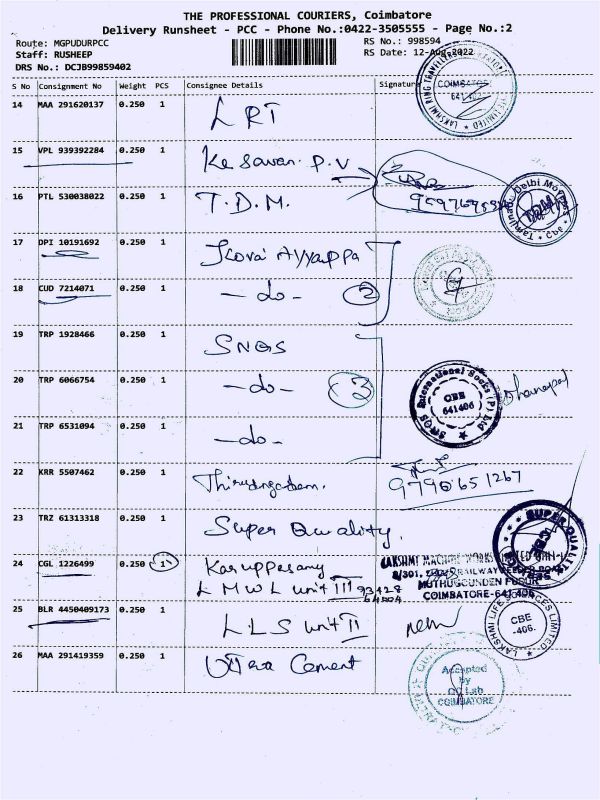 THE PROFESSIONAL COURIERS, Coimbatore
Delivery Runsheet - PCC - Phone No.:0422-3505555 - Page No.:2
Route: MGPUDURPCC
Staff: RUSHEEP
DRS No.: DCJB99859402
RS No.: 998594
RS Date: 12-Aug-2022
S No Consignment No Weight PCS Consignee Details Signature
14 MAA 291620137 0.250 1 LRT
COIMBATORE
15 VPL 939392284 0.250 1 Kesavan P.V
16 PTL 530038022 0.250 1 T.D.M.
17 DPI 10191692 0.250 1 Kovai Ayyappa
18 CUD 7214071 0.250 1 -do- 2
19 TRP 1928466 0.250 1 SNGS
20 TRP 6066754 0.250 1 -do- 3
SNGS International Books (P) Ltd
CBE
641406
Dhanapal
21 TRP 6531094 0.250 1 -do-
22 KRR 5507462 0.250 1
9790651267
23 TRZ 61313318 0.250 1 Super Quality.
SUPER QUALITY
24 CGL 1226499 0.250 1 Karuppasamy
LMWL unit III
LAKSHMI MACHINE WORKS LIMITED UNIT-I
COIMBATORE-641 406
25 BLR 4450409173 0.250 1 LLS unit II
CBE
-406.
26 MAA 291419359 0.250 1 Ultra Cement
Accepted
by
QC Lab
COIMBATORE